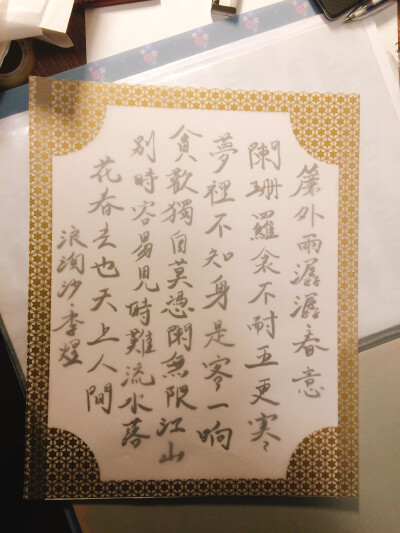 簾外雨潺潺春意
闌珊羅衾不耐五更寒
夢裡不知身是客一响
貪歡獨自莫憑閑無限江山
別時容易見時難流水落
花春去也天上人間
浪淘沙·李煜